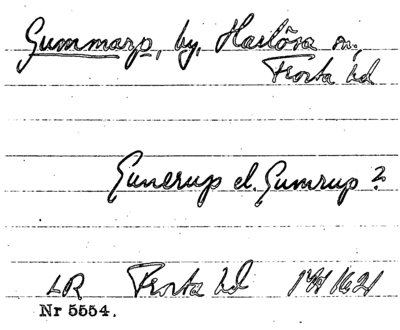 Gummarp, by, Harlösa sn,
Frosta hd
Gunerup el. Gumrup?
LR Frosta hd 1621
Nr 5554.